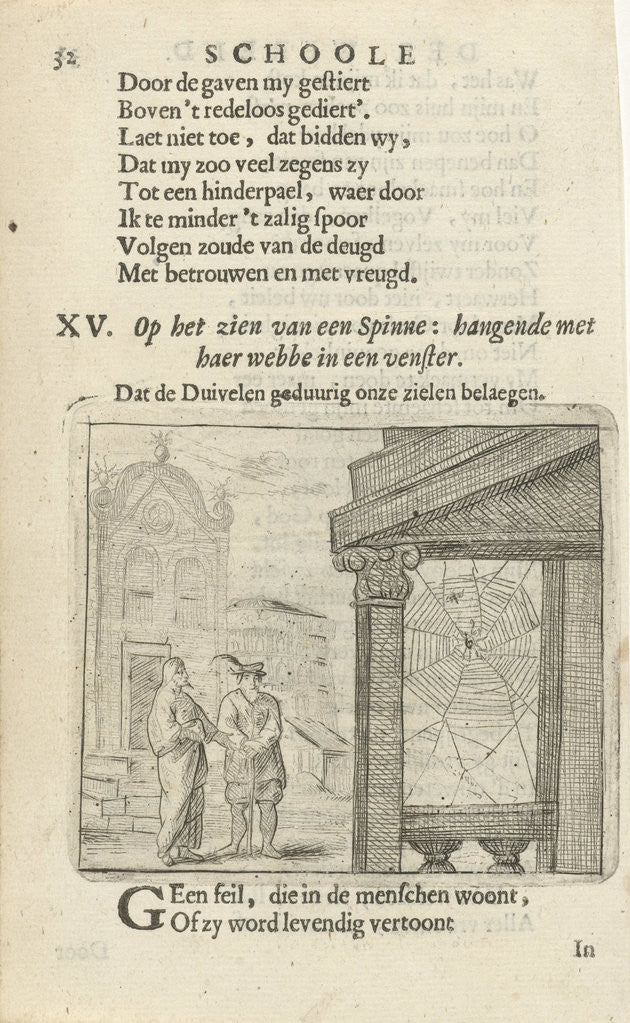 32 SCHOOLE
Door de gaven my geſtiert
Boven 't redeloos gediert'.
Laet niet toe, dat bidden wy,
Dat my zoo veel zegens zy
Tot een hinderpael, waer door
Ik te minder 't zalig ſpoor
Volgen zoude van de deugd
Met betrouwen en met vreugd.
XV. Op het zien van een Spinne: hangende met
haer webbe in een venſter.
Dat de Duivelen geduurig onze zielen belaegen.
GEen feil, die in de menſchen woont,
Of zy word levendig vertoont
In